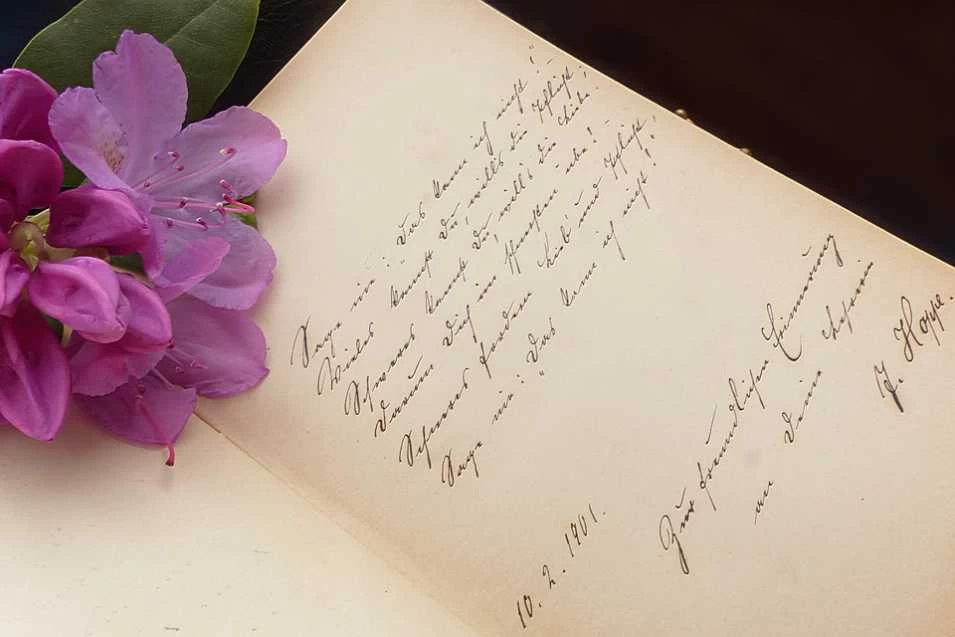 Sage nie: „Das kann ich nicht!"
Vieles kannst Du, will's die Pflicht;
Schweres kannst Du, will's die Liebe!
Darum Dich im Schwersten übe! –
Schweres fordern Lieb' und Pflicht!
Sage nie: „Das kann ich nicht!"
Zur freundlichen Erinnerung
an Deine
Hoppe.
10. 2. 1901.